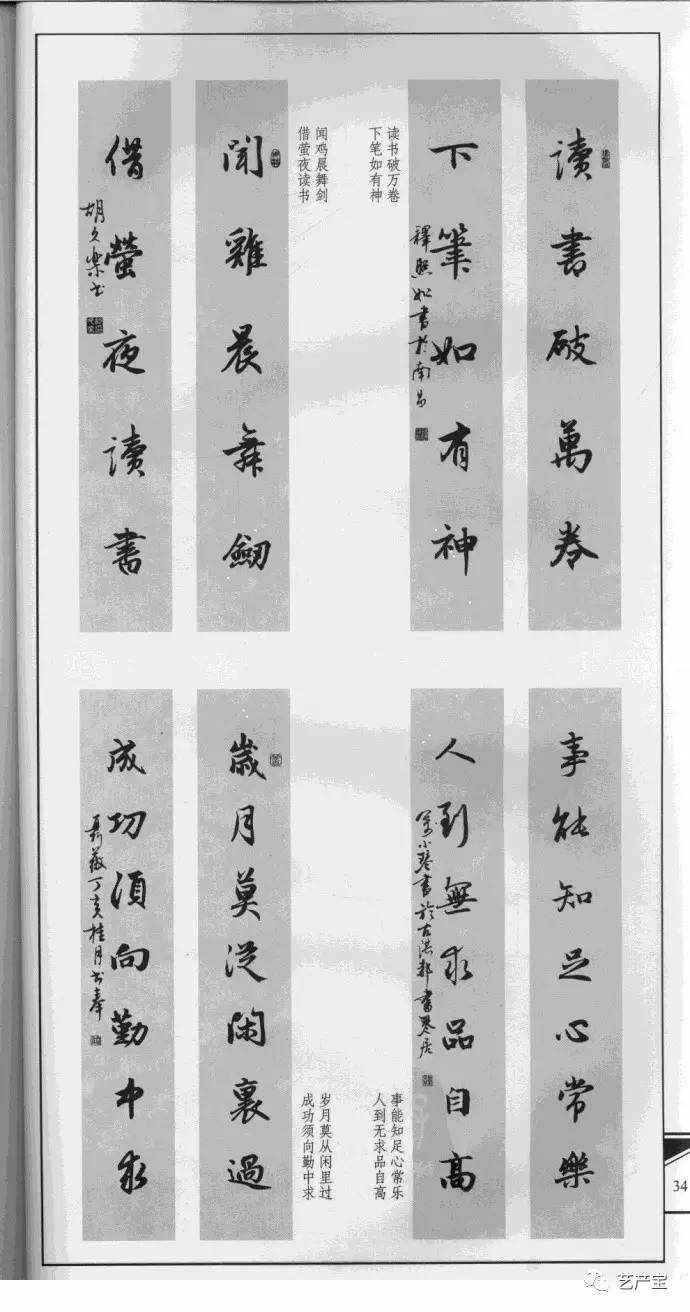 讀書破萬卷
下筆如有神
釋照如書於南昌
读书破万卷
下笔如有神
聞雞晨舞劒
借螢夜讀書
胡久樂书
闻鸡晨舞剑
借萤夜读书
事能知足心常樂
人到無求品自高
万小琴書於古洪都書琴居
事能知足心常乐
人到无求品自高
歲月莫從閑裏過
成功須向勤中求
聂薇丁亥桂月书奉
岁月莫从闲里过
成功须向勤中求
34
艺产宝